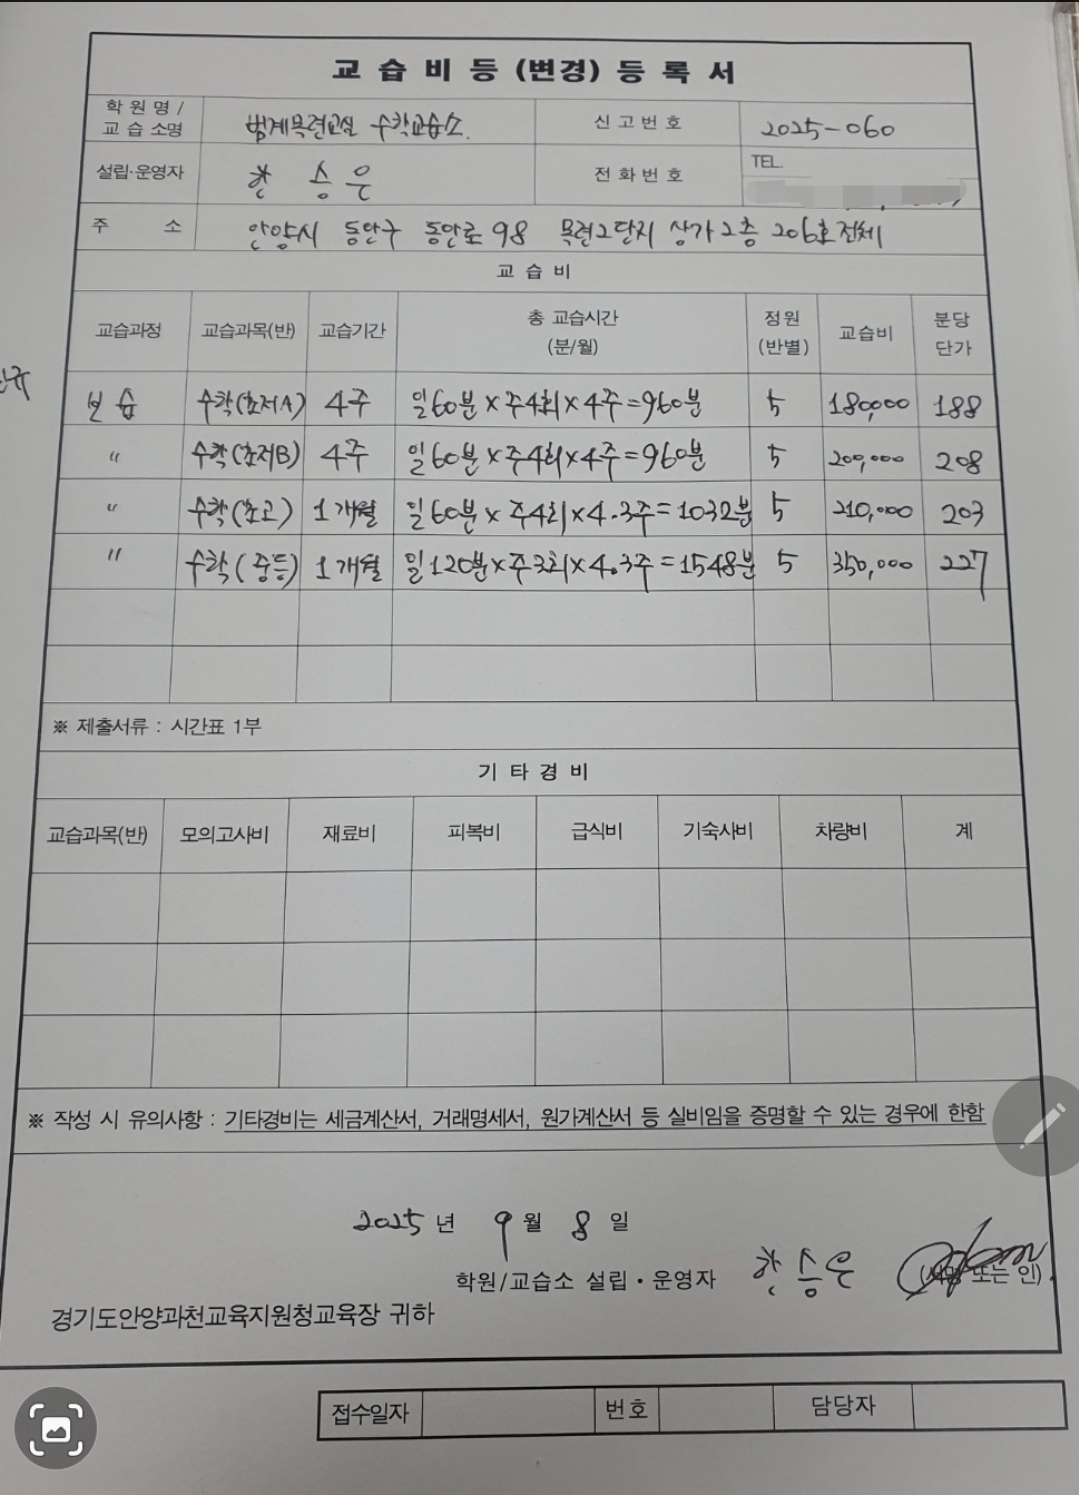 교 습 비 등 (변경) 등 록 서
학 원 명 / 교 습 소명 범계목련교실 수학교습소. 신 고 번 호 2025-060
설립·운영자 한 승 은 전 화 번 호 TEL.
주 소 안양시 동안구 동안로 98 목련2단지 상가 2층 206호 전체
교 습 비
교습과정 교습과목(반) 교습기간 총 교습시간 (분/월) 정원 (반별) 교습비 분당 단가
보 습 수학(초저A) 4주 일60분×주4회×4주=960분 5 180,000 188
〃 수학(초저B) 4주 일60분×주4회×4주=960분 5 200,000 208
〃 수학(초고) 1개월 일60분×주4회×4.3주=1032분 5 210,000 203
〃 수학(중등) 1개월 일120분×주3회×4.3주=1548분 5 350,000 227
※ 제출서류 : 시간표 1부
기 타 경 비
교습과목(반) 모의고사비 재료비 피복비 급식비 기숙사비 차량비 계
※ 작성 시 유의사항 : 기타경비는 세금계산서, 거래명세서, 원가계산서 등 실비임을 증명할 수 있는 경우에 한함
2025 년 9 월 8 일
학원/교습소 설립 · 운영자 한 승 은 (서명 또는 인)
경기도안양과천교육지원청교육장 귀하
접수일자 번호 담당자